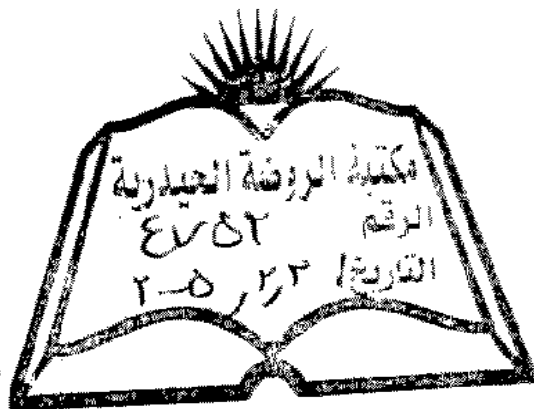 مكتبة الروضة الحيدرية
الرقم ٤٧٥٢
التاريخ/